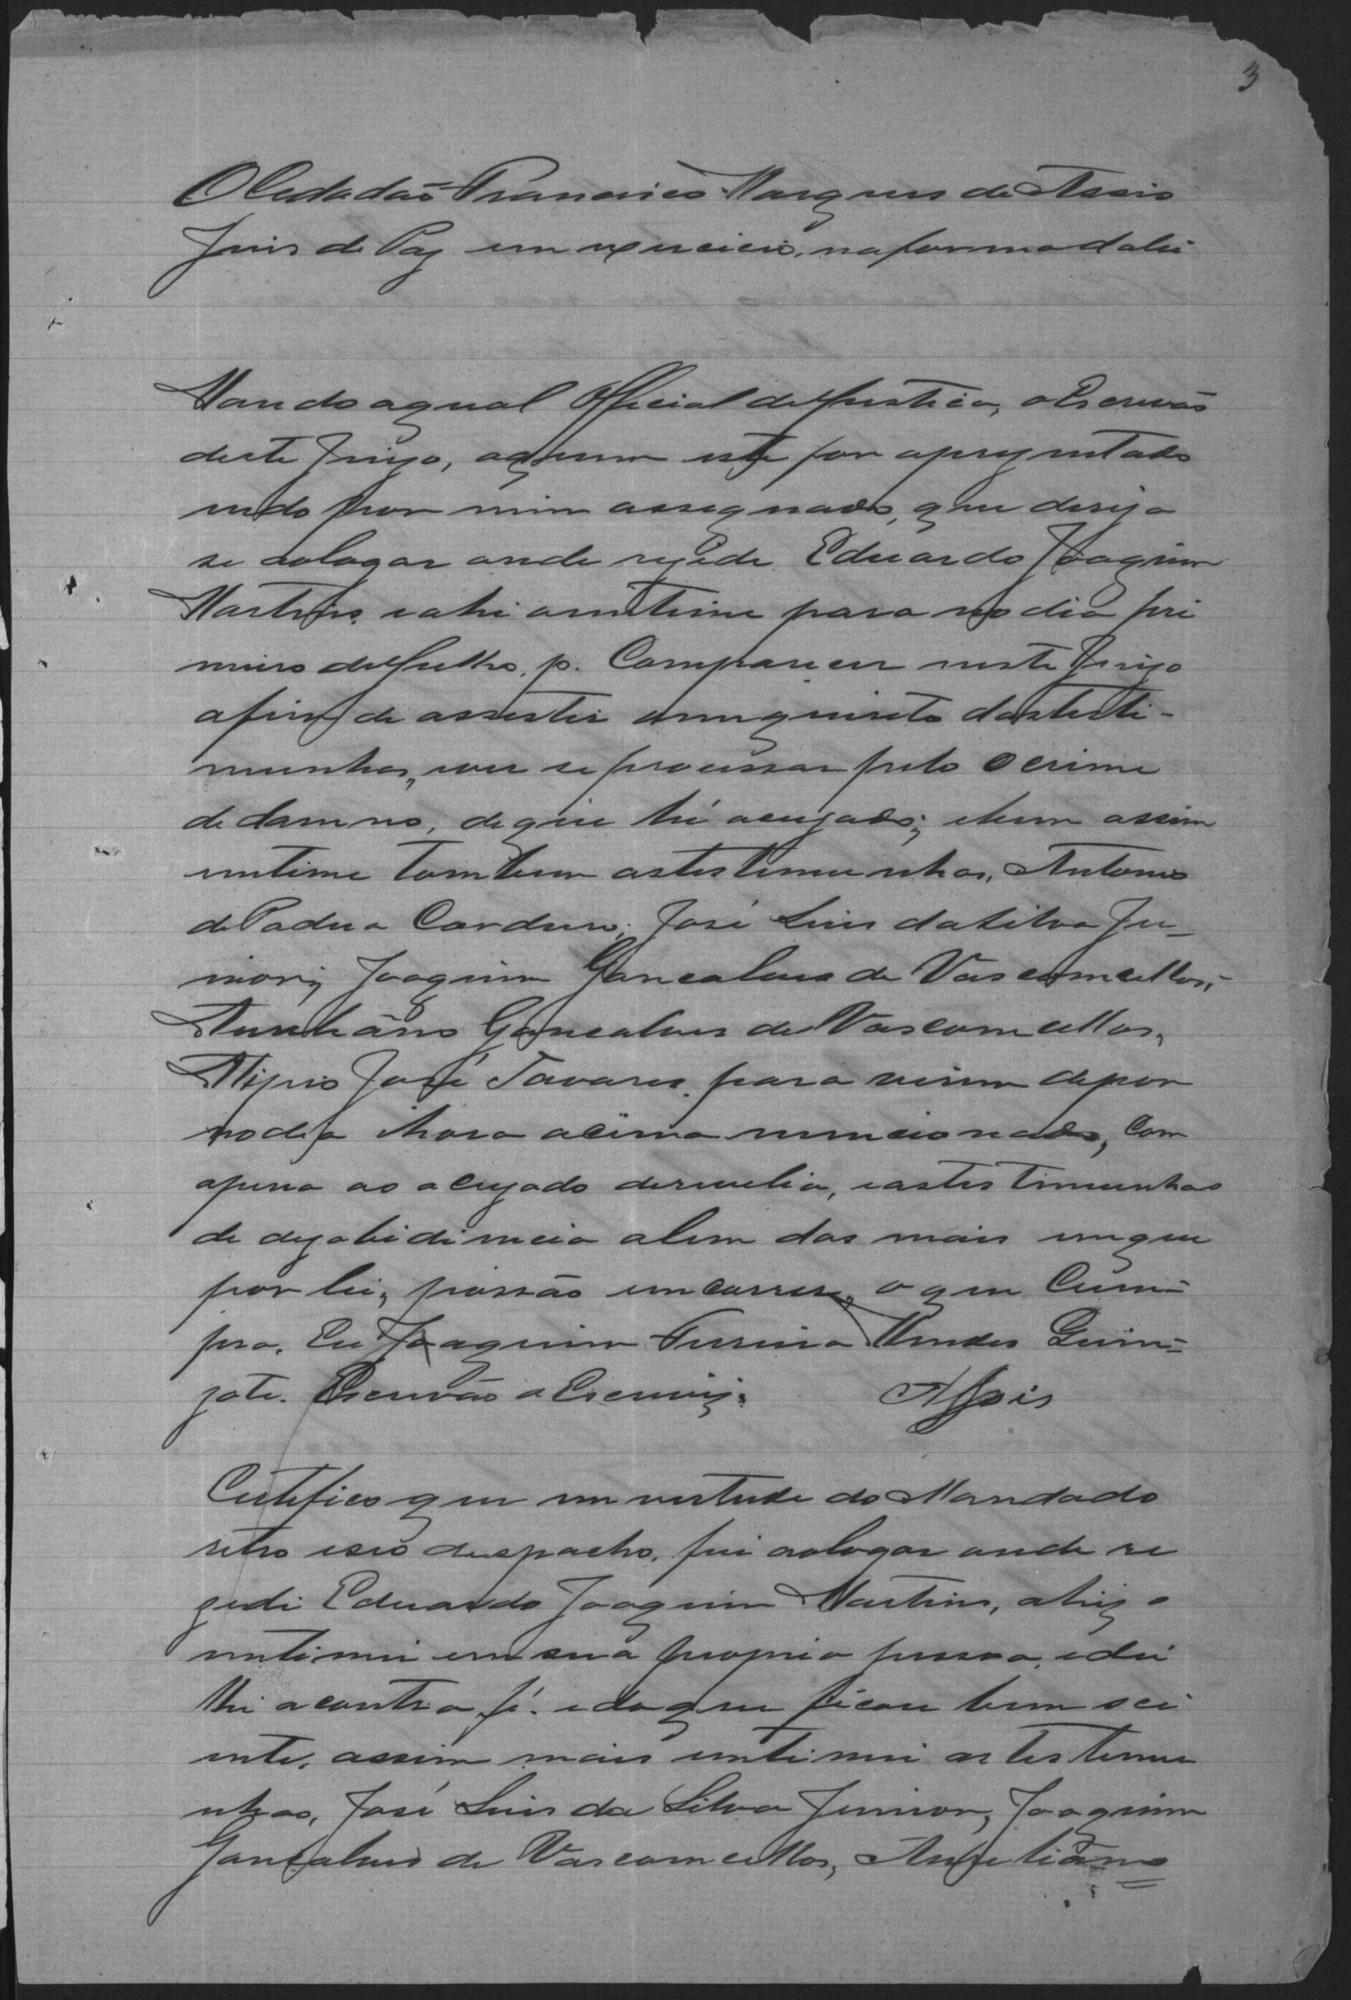 3
O Cidadão Francisco Marques de Assis
Juis de Paz em exercicio, na forma da lei
Mando a qual Official de Justica, o Escrivão
deste Juizo, a quem este for aprezentado
indo por mim assignado, que dirija
se ao logar onde rezide Eduardo Joaquim
Martins, e ahi o intime para no dia pri
meiro de Julho, p. Comparecer neste Juizo
afim de assistir o inquirito das testi-
munhas, e ver se processar pelo o crime
de damno, de que hé acuzado; e bem assim
intime tambem as testimunhas, Antonio
de Padua Cardoso; José Luis da Silva Ju-
nior; Joaquim Goncalves de Vasconcellos,
Aureliãno Goncalves de Vasconcellos,
Alipio José Tavares, para virem depor
no dia e hora acima mencionado, com
a pena ao acuzado de revelia, e as testimunhas
de dezobidiencia alem das mais em que
por lei, possão emcorrer, o que Cum-
pra. Eu Joaquim Ferreira Mendes Guim-
Escrivão o Escrevi. Assis
Certifico que em vertude do Mandado
retro e seo despacho, fui ao logar onde re
zedi Eduardo Joaquim Martins, ahi o
intimei em sua propria pessoa, e dei
lhi a contra fé. e do que ficou bem sci
ente, assim mais intimei as testemu
nhas, José Luis da Silva Junior, Joaquim
Goncalves de Vasconcellos, Aureliãno